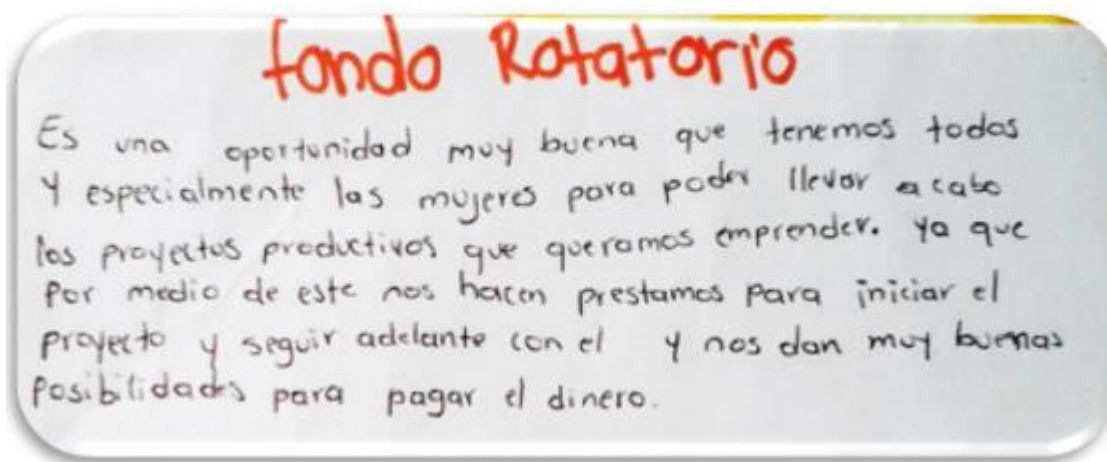 fondo Rotatorio
Es una oportunidad muy buena que tenemos todas
Y especialmente las mujeres para poder llevar a cabo
los proyectos productivos que queramos emprender. ya que
Por medio de este nos hacen prestamos para iniciar el
proyecto y seguir adelante con el y nos dan muy buenas
Posibilidades para pagar el dinero.